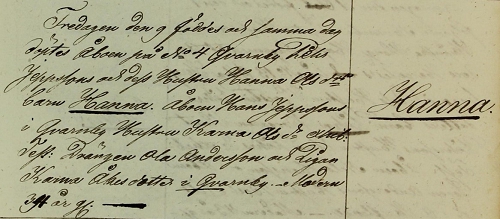 Fredagen den 9 föddes och samma dag
döptes Åboen på No 4 Qvarnby Nills
Jeppsons och dess Hustru Hanna Ols dotters
barn Hanna. Åboen Hans Jeppsons
i Qvarnby Hustru Karna Ols dr
Test: Drängen Ola Andersson och Pigan
Karna Åkesdotter i Qvarnby. Modern
34 år g:
Hanna.